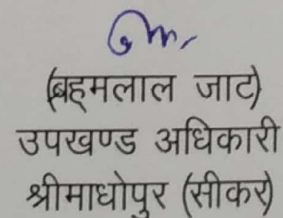 (बहमलाल जाट)
उपखण्ड अधिकारी
श्रीमाधोपुर (सीकर)